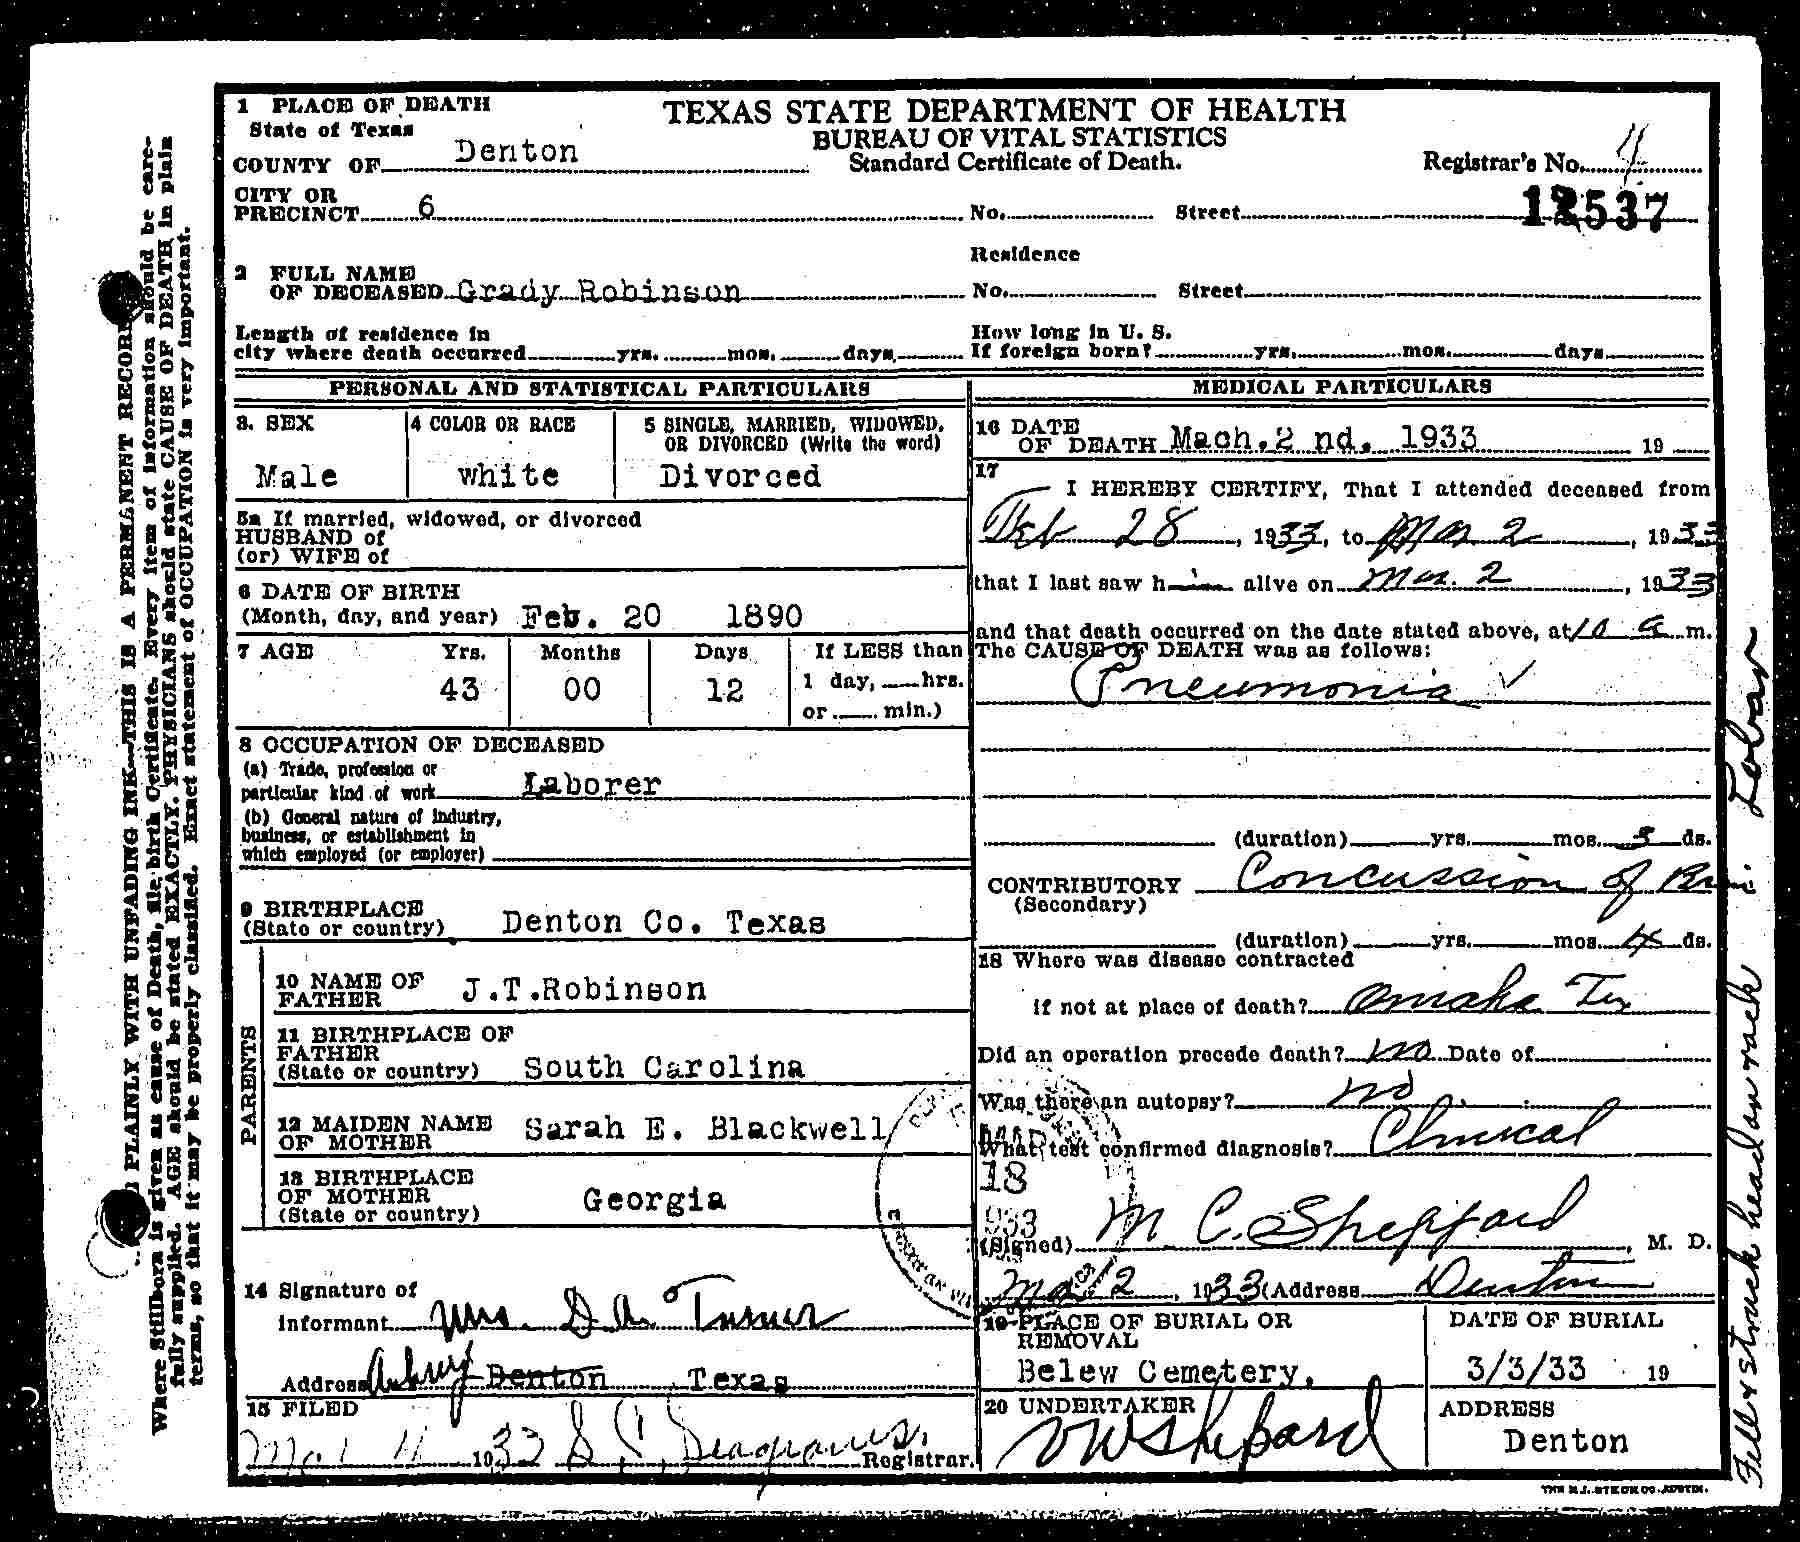 1 PLACE OF DEATH
State of Texas
COUNTY OF Denton
CITY OR
PRECINCT 6
TEXAS STATE DEPARTMENT OF HEALTH
BUREAU OF VITAL STATISTICS
Standard Certificate of Death.
Registrar's No. 4
No. Street 12537
2 FULL NAME
OF DECEASED Grady Robinson
Residence
No. Street
Length of residence in
city where death occurred yrs. mos. days.
How long in U. S.
If foreign born? yrs. mos. days.
PERSONAL AND STATISTICAL PARTICULARS
3. SEX
Male
4 COLOR OR RACE
white
5 SINGLE, MARRIED, WIDOWED,
OR DIVORCED (Write the word)
Divorced
5a If married, widowed, or divorced
HUSBAND of
(or) WIFE of
6 DATE OF BIRTH
(Month, day, and year) Feb. 20 1890
7 AGE Yrs. Months Days If LESS than
43 00 12 1 day, hrs.
or min.)
8 OCCUPATION OF DECEASED
(a) Trade, profession or
particular kind of work Laborer
(b) General nature of industry,
business, or establishment in
which employed (or employer)
9 BIRTHPLACE
(State or country) Denton Co. Texas
PARENTS
10 NAME OF
FATHER J.T.Robinson
11 BIRTHPLACE OF
FATHER
(State or country) South Carolina
12 MAIDEN NAME
OF MOTHER Sarah E. Blackwell
13 BIRTHPLACE
OF MOTHER
(State or country) Georgia
14 Signature of
Informant Mrs. D A Turner
Address Aubrey Denton Texas
15 FILED
Mar 11 1933 Registrar.
MEDICAL PARTICULARS
16 DATE
OF DEATH Mach.2 nd. 1933 19
17
I HEREBY CERTIFY, That I attended deceased from
Feb 28, 1933, to Mar 2, 1933
that I last saw him alive on Mar. 2, 1933
and that death occurred on the date stated above, at 10 a m.
The CAUSE OF DEATH was as follows:
Pneumonia ✓
(duration) yrs. mos. 3 ds.
CONTRIBUTORY Concussion of Brain
(Secondary)
(duration) yrs. mos. 4 ds.
18 Where was disease contracted
if not at place of death? Omaha Tex
Did an operation precede death? no Date of
Was there an autopsy? no
What test confirmed diagnosis? Clinical
(Signed) M. C. Sheppard, M. D.
Mar 2, 1933 (Address Denton
19 PLACE OF BURIAL OR
REMOVAL
Belew Cemetery.
DATE OF BURIAL
3/3/33 19
20 UNDERTAKER
ADDRESS
Denton
MAR
18
933
THE H.J. STECK CO. AUSTIN.
PLAINLY WITH UNFADING INK—THIS IS A PERMANENT RECORD
Where Stillborn is given as cause of Death, file birth Certificate. Every item of information should be care-
fully supplied. AGE should be stated EXACTLY. PHYSICIANS should state CAUSE OF DEATH in plain
terms, so that it may be properly classified. Exact statement of OCCUPATION is very important.
Fell & struck head on rock : Lobar